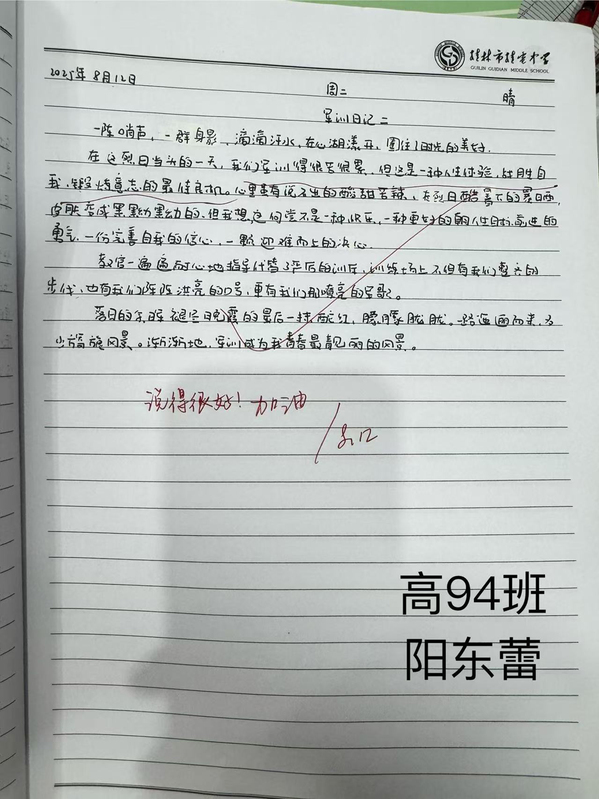 桂林市桂电中学
GUILIN GUIDIAN MIDDLE SCHOOL
2025年8月12日 周二 晴
军训日记二
一阵哨声,一群身影,滴滴汗水,在心湖漾开,圈住1时光的美好.
在这烈日当头的一天,我们军训得很苦很累,但这是一种人生体验,战胜自
我,锻炼意志的最佳良机.心里虽有说不出的酸甜苦辣,在烈日酷暑下的暴日晒,
皮肤变成黑黝黝的,但我想这何尝不是一种快乐,一种更好的朝人生目标前进的
勇气,一份完善自我的信心,一颗迎难而上的决心.
教官一遍遍耐心地指导代替了严厉的训斥,训练场上不但有我们整齐的
步伐,也有我们阵阵洪亮的口号,更有我们那嘹亮的军歌。
落日的余晖 天空晚霞的最后一抹酡红,朦朦胧胧.一路迎面而来,多
少旖旎风景。渐渐地,军训成为我青春最靓丽的风景。
说得很好!加油
8.12
高94班
阳东蕾